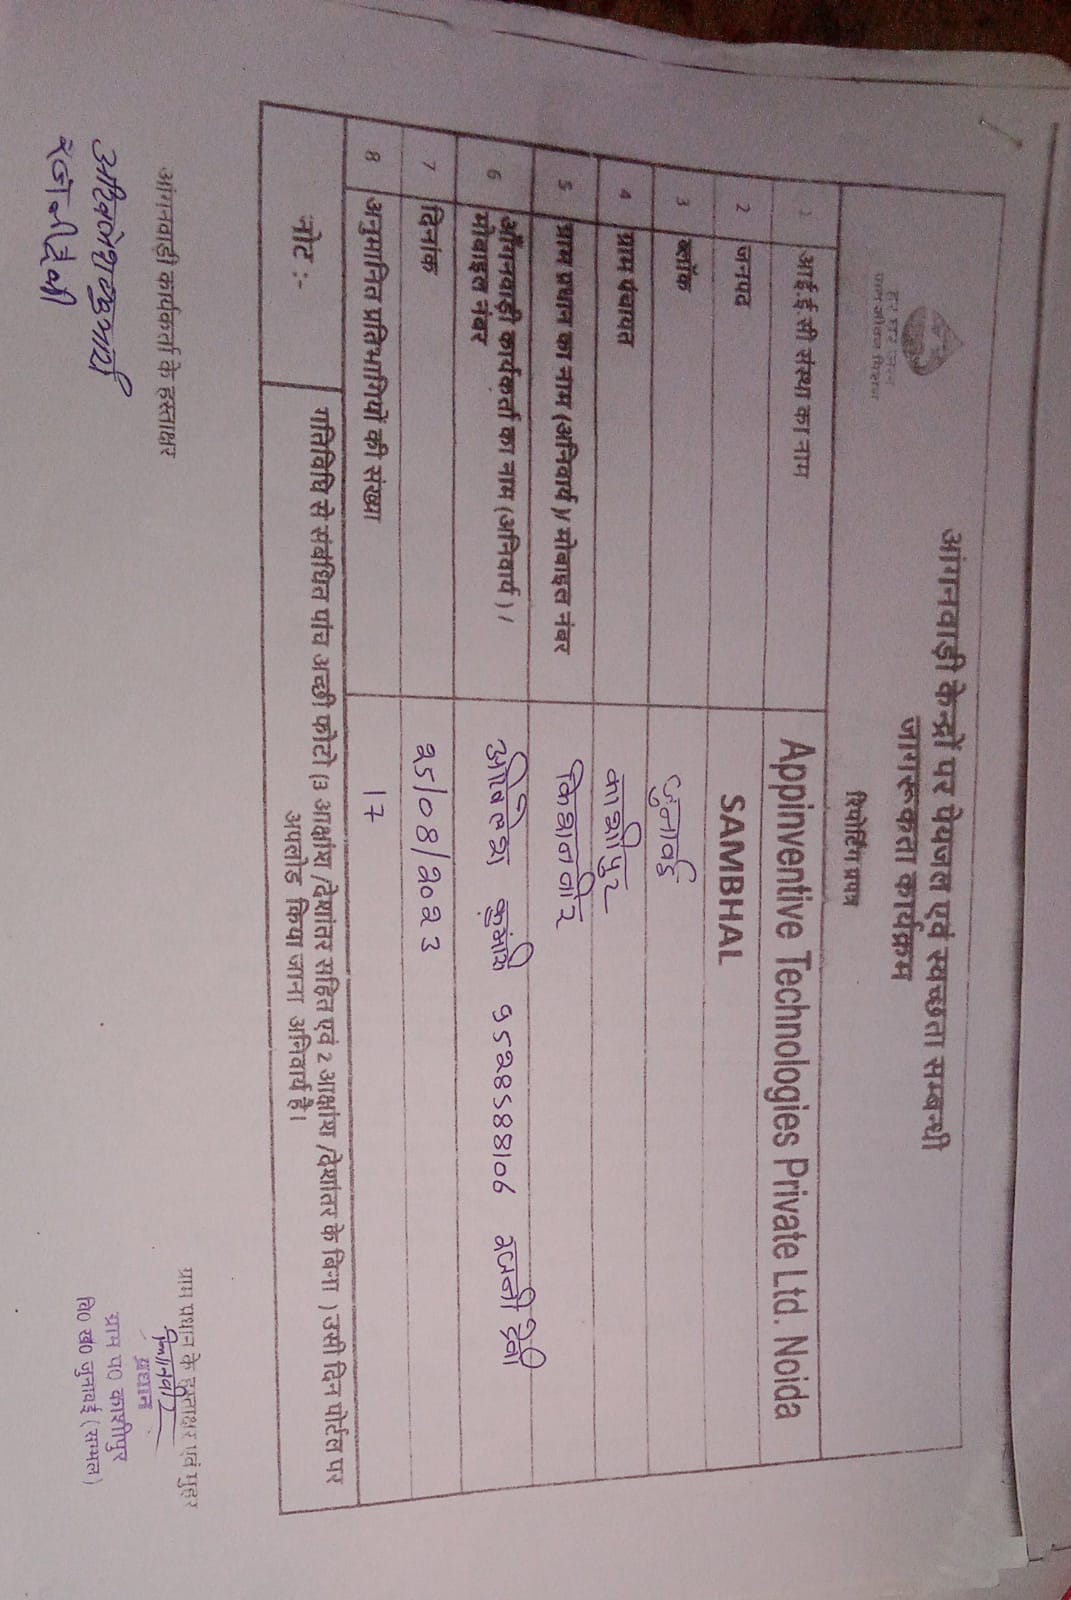 हर घर जल
जल जीवन मिशन
आंगनवाड़ी केन्द्रों पर पेयजल एवं स्वच्छता सम्बन्धी
जागरूकता कार्यक्रम
रिपोर्टिंग प्रपत्र
1 आई ई सी संस्था का नाम Appinventive Technologies Private Ltd. Noida
2 जनपद SAMBHAL
3 ब्लॉक जुनावई
4 ग्राम पंचायत काशीपुर
5 ग्राम प्रधान का नाम (अनिवार्य)/ मोबाइल नंबर किशनवीर
6 आँगनवाड़ी कार्यकर्ता का नाम (अनिवार्य ) / कुमारी 9528588106 रजनी देवी
मोबाइल नंबर
7 दिनांक 25/08/2023
8 अनुमानित प्रतिभागियों की संख्या 17
नोट :- गतिविधि से संबंधित पांच अच्छी फोटो (3 आक्षांश /देशांतर सहित एवं 2 आक्षांश /देशांतर के बिना ) उसी दिन पोर्टल पर
अपलोड किया जाना अनिवार्य है।
आंगनवाड़ी कार्यकर्ता के हस्ताक्षर
रजनी देवी
ग्राम प्रधान के हस्ताक्षर एवं मुहर
प्रधान
ग्राम पं0 काशीपुर
वि0 ख0 जुनावई (सम्भल)